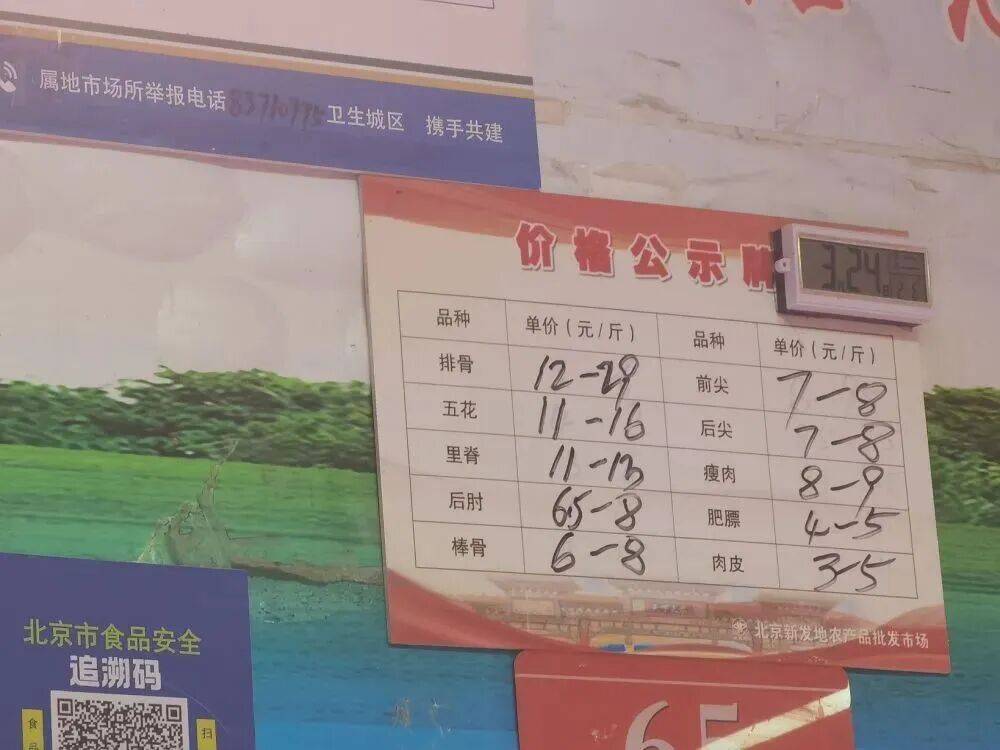 属地市场所举报电话83710775卫生城区 携手共建
价格公示牌
3.24
品种 单价(元/斤) 品种 单价(元/斤)
排骨 12-29 前尖 7-8
五花 11-16 后尖 7-8
里脊 11-13 瘦肉 8-9
后肘 6.5-8 肥膘 4-5
棒骨 6-8 肉皮 3-5
北京新发地农产品批发市场
北京市食品安全
追溯码
食品
扫
65